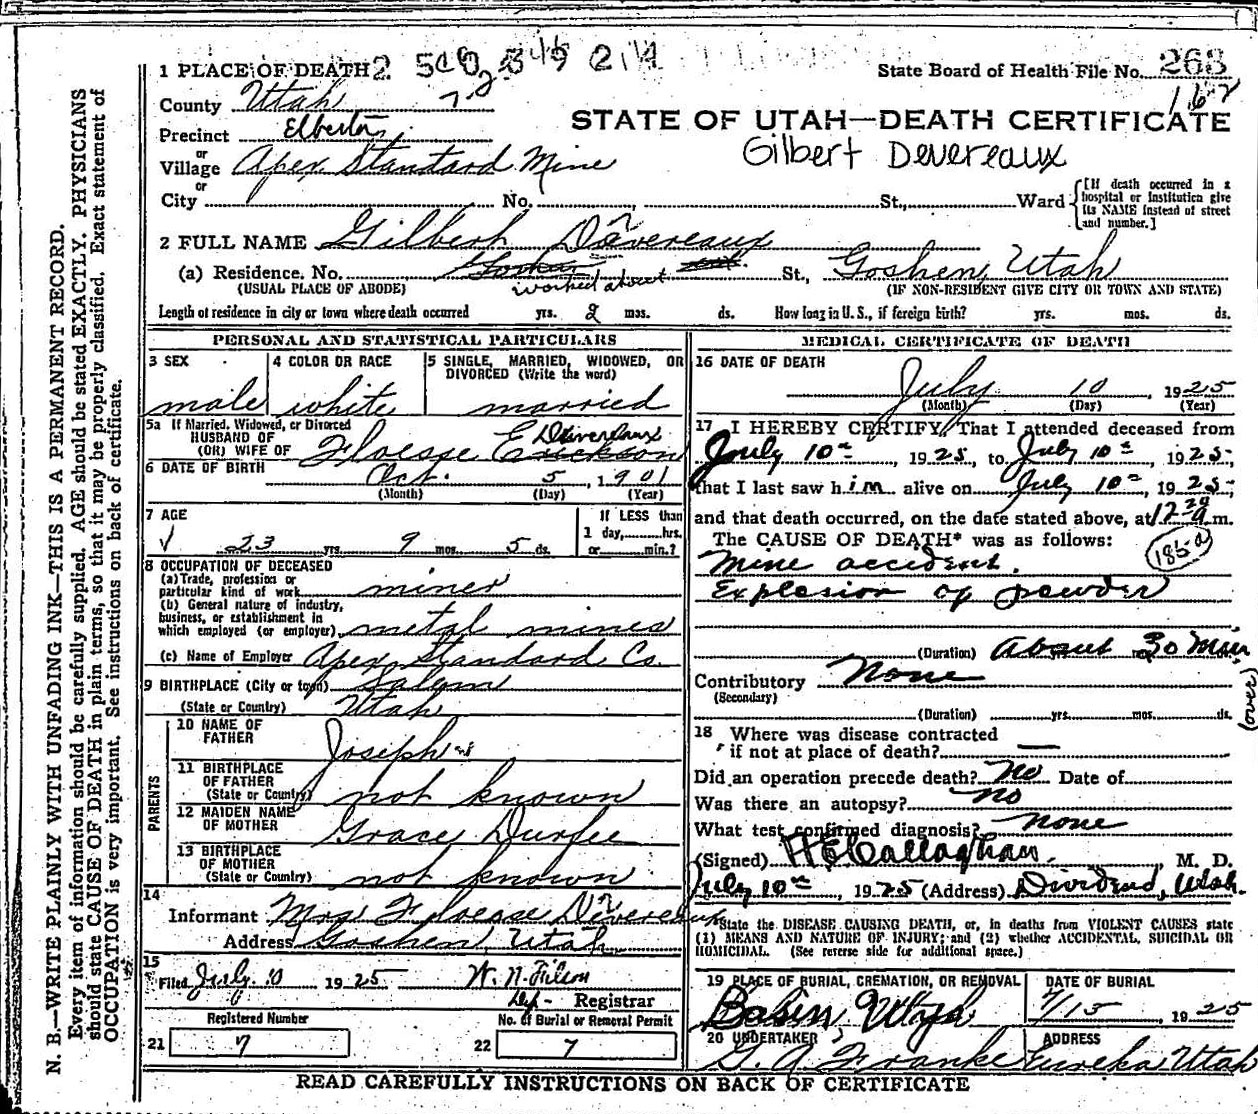 1 PLACE OF DEATH
State Board of Health File No. 263
162
County Utah
STATE OF UTAH—DEATH CERTIFICATE
Precinct Elberton
Gilbert Devereaux
or
Village Apex Standard Mine
or
City No. , St., Ward
[If death occurred in a hospital or institution give its NAME instead of street and number.]
2 FULL NAME Gilbert Devereaux
(a) Residence. No. St., Goshen, Utah
(USUAL PLACE OF ABODE) worked about (IF NON-RESIDENT GIVE CITY OR TOWN AND STATE)
Length of residence in city or town where death occurred yrs. 2 mos. ds. How long in U. S., if foreign birth? yrs. mos. ds.
PERSONAL AND STATISTICAL PARTICULARS
3 SEX
male
4 COLOR OR RACE
white
5 SINGLE, MARRIED, WIDOWED, OR DIVORCED (Write the word)
married
5a If Married, Widowed, or Divorced
HUSBAND OF
(OR) WIFE OF Floesse Erickson Devereaux
6 DATE OF BIRTH Oct. 5, 1901
(Month) (Day) (Year)
7 AGE
23 yrs. 9 mos. 5 ds.
If LESS than
1 day, hrs.
or min.?
8 OCCUPATION OF DECEASED
(a) Trade, profession or
particular kind of work miner
(b) General nature of industry,
business, or establishment in
which employed (or employer) metal mines
(c) Name of Employer Apex Standard Co.
9 BIRTHPLACE (City or town) Salem
(State or Country) Utah
PARENTS
10 NAME OF
FATHER Joseph
11 BIRTHPLACE
OF FATHER
(State or Country) not known
12 MAIDEN NAME
OF MOTHER Grace Durfee
13 BIRTHPLACE
OF MOTHER
(State or Country) not known
14
Informant Mrs Floesse Devereaux
Address Goshen, Utah
15
Filed July 10 1925 W. N. Filson
Dep- Registrar
Registered Number No. of Burial or Removal Permit
21 7 22 7
MEDICAL CERTIFICATE OF DEATH
16 DATE OF DEATH
July 10 1925
(Month) (Day) (Year)
17 I HEREBY CERTIFY, That I attended deceased from
July 10th, 1925, to July 10th, 1925,
that I last saw him alive on July 10th, 1925,
and that death occurred, on the date stated above, at 12 30 a m.
The CAUSE OF DEATH* was as follows:
185a
Mine accident.
Explosion of powder
(Duration) About 30 Min
Contributory None
(Secondary)
(Duration) yrs. mos. ds.
(over)
18 Where was disease contracted
if not at place of death? —
Did an operation precede death? No Date of
Was there an autopsy? No
What test confirmed diagnosis? none
(Signed) H E Callaghan, M. D.
July 10th, 1925 (Address) Dividend, Utah.
*State the DISEASE CAUSING DEATH, or, in deaths from VIOLENT CAUSES state
(1) MEANS AND NATURE OF INJURY; and (2) whether ACCIDENTAL, SUICIDAL OR
HOMICIDAL. (See reverse side for additional space.)
19 PLACE OF BURIAL, CREMATION, OR REMOVAL
Utah
DATE OF BURIAL
7/15 1925
20 UNDERTAKER
G. A. Franke
ADDRESS
Eureka Utah
READ CAREFULLY INSTRUCTIONS ON BACK OF CERTIFICATE
N. B.—WRITE PLAINLY WITH UNFADING INK—THIS IS A PERMANENT RECORD.
Every item of information should be carefully supplied. AGE should be stated EXACTLY. PHYSICIANS
should state CAUSE OF DEATH in plain terms, so that it may be properly classified. Exact statement of
OCCUPATION is very important. See instructions on back of certificate.